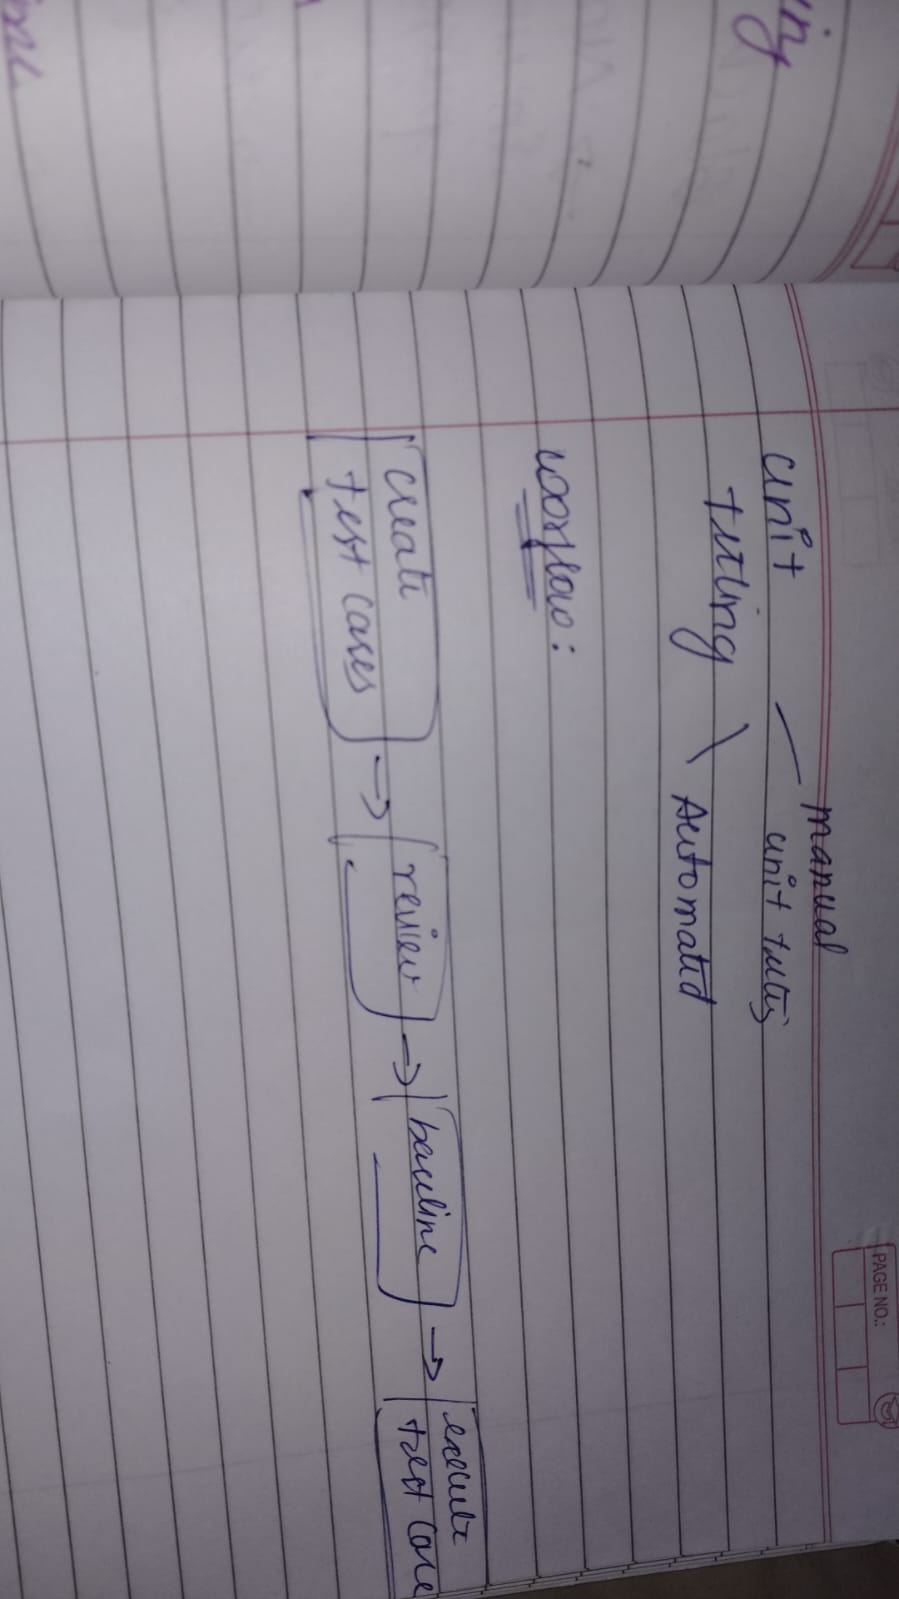 PAGE NO.:
manual
unit tests
unit
testing
Automated
workflow:
create
test cases
→ review → baseline → execute
test case